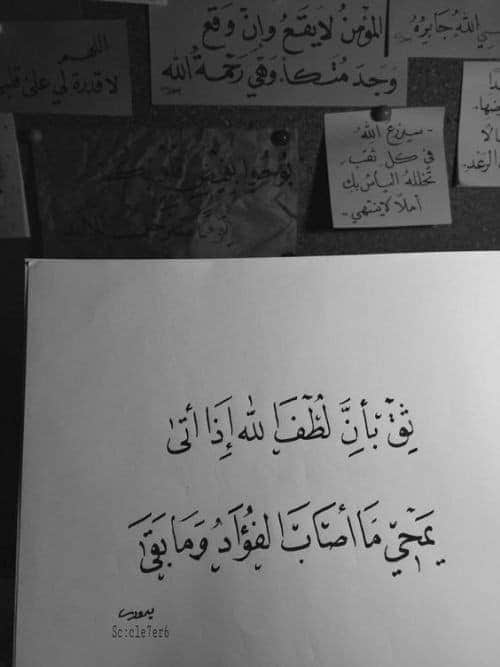 اللهُ جَابِرُهُ
المؤمنُ لا يقَعُ وإنْ وَقع
وَجدَ مُتكأً وَهْيَ رَحْمَةُ الله
اللهم
لا قدرة لي على
- سيزرع اللهُ
في كل ثقب
تخللهُ اليأس بك
أملًا لا ينتهي -
ثِقْ بأنَّ لُطْفَ اللهِ إذَا أتىٰ
يَمْحِي مَا أصَابَ الفُؤادَ وَمَا بَقَىٰ
Sc:cle7er6